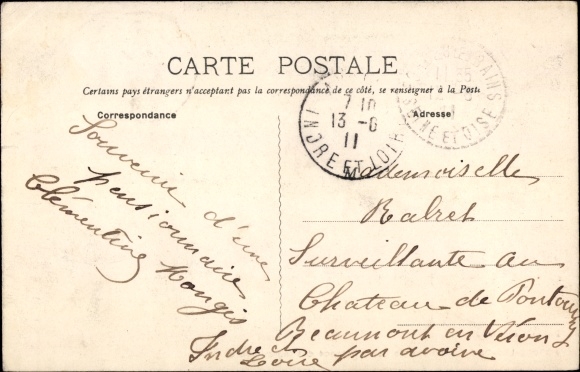 CARTE POSTALE
Certains pays étrangers n'acceptant pas la correspondance de ce côté, se renseigner à la Poste
Correspondance
Adresse
7 10
13 - 6
11
INDRE ET LOIRE
ET OISE
Souvenir d'une
pensionnaire
Clémentine Mongis
Mademoiselle
Ralret
Surveillante au
Chateau de
Beaumont en Véron
Indre et
Loire par avoine